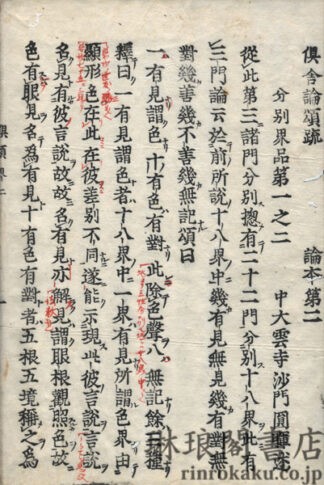 俱舍論頌疏 論本第二
分別界品第一之二 中大雲寺沙門圓暉述
從此第三諸門分別揔有二十二門分別十八界此有
三門論云於前所說十八界中幾有見幾無見幾有對幾無
對幾善幾不善幾無記頌曰
一有見謂色 十有色有對 此除色聲八 無記餘三種
釋曰一有見謂色者十八界中一界有見所謂色界由
顯形色在此在彼差別不同遂能示現此彼言說言說
名見有彼言說故故名有見亦解見謂眼根觀照色故
色有眼見名為有見十有色有對者五根五境稱之為
琳琅閣書店
rinrokaku.co.jp